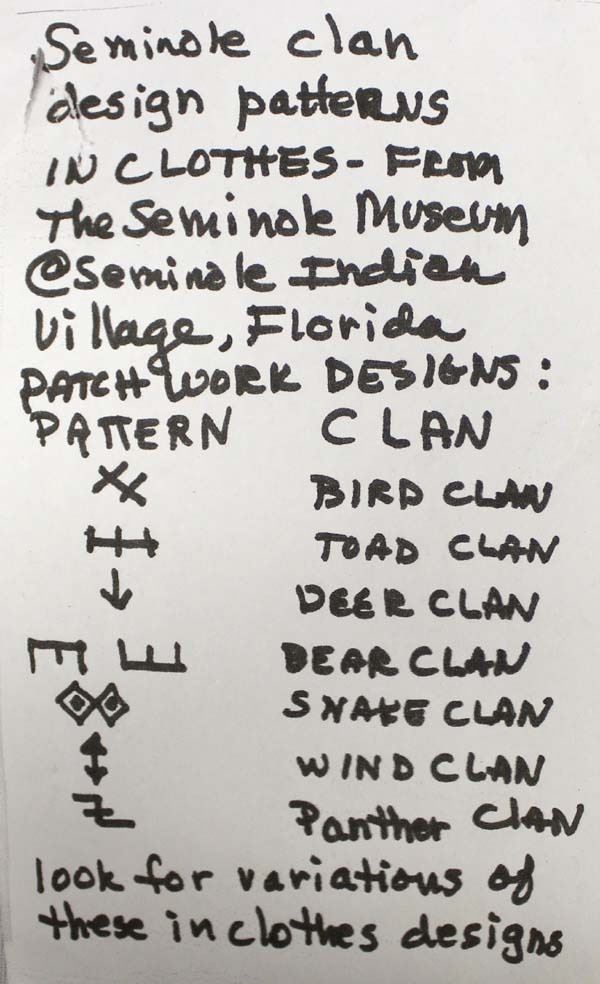 Seminole clan
design patterns
IN CLOTHES - FROM
The Seminole Museum
@ Seminole Indian
Village, Florida
PATCHWORK DESIGNS:
PATTERN CLAN
BIRD CLAN
TOAD CLAN
DEER CLAN
BEAR CLAN
SNAKE CLAN
WIND CLAN
Panther CLAN
look for variations of
these in clothes designs